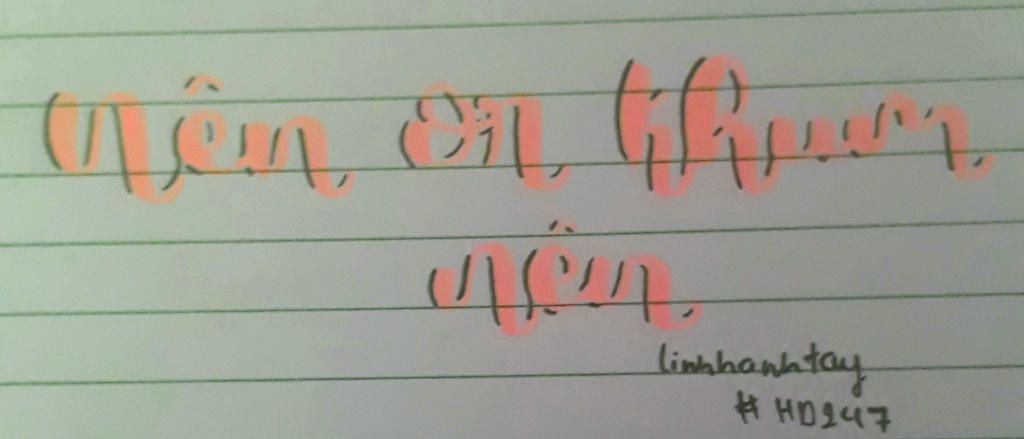 Nên ơn khum
nên
linhhanhtay
#HD247